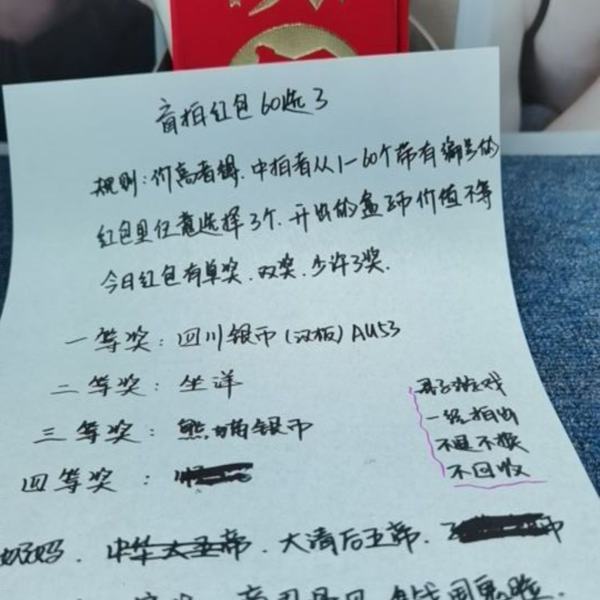 盲拍红包60选3
规则:价高者得.中拍者从1-60个带有编号的
红包里任意选择3个.开出的盒子币价值不等
今日红包有单奖.双奖.少许3奖.
一等奖:四川银币(汉板)AU53
二等奖:坐洋
三等奖:熊猫银币
四等奖:
游戏
一经拍出
不退不换
不回收
中华大五帝.大清后五帝.